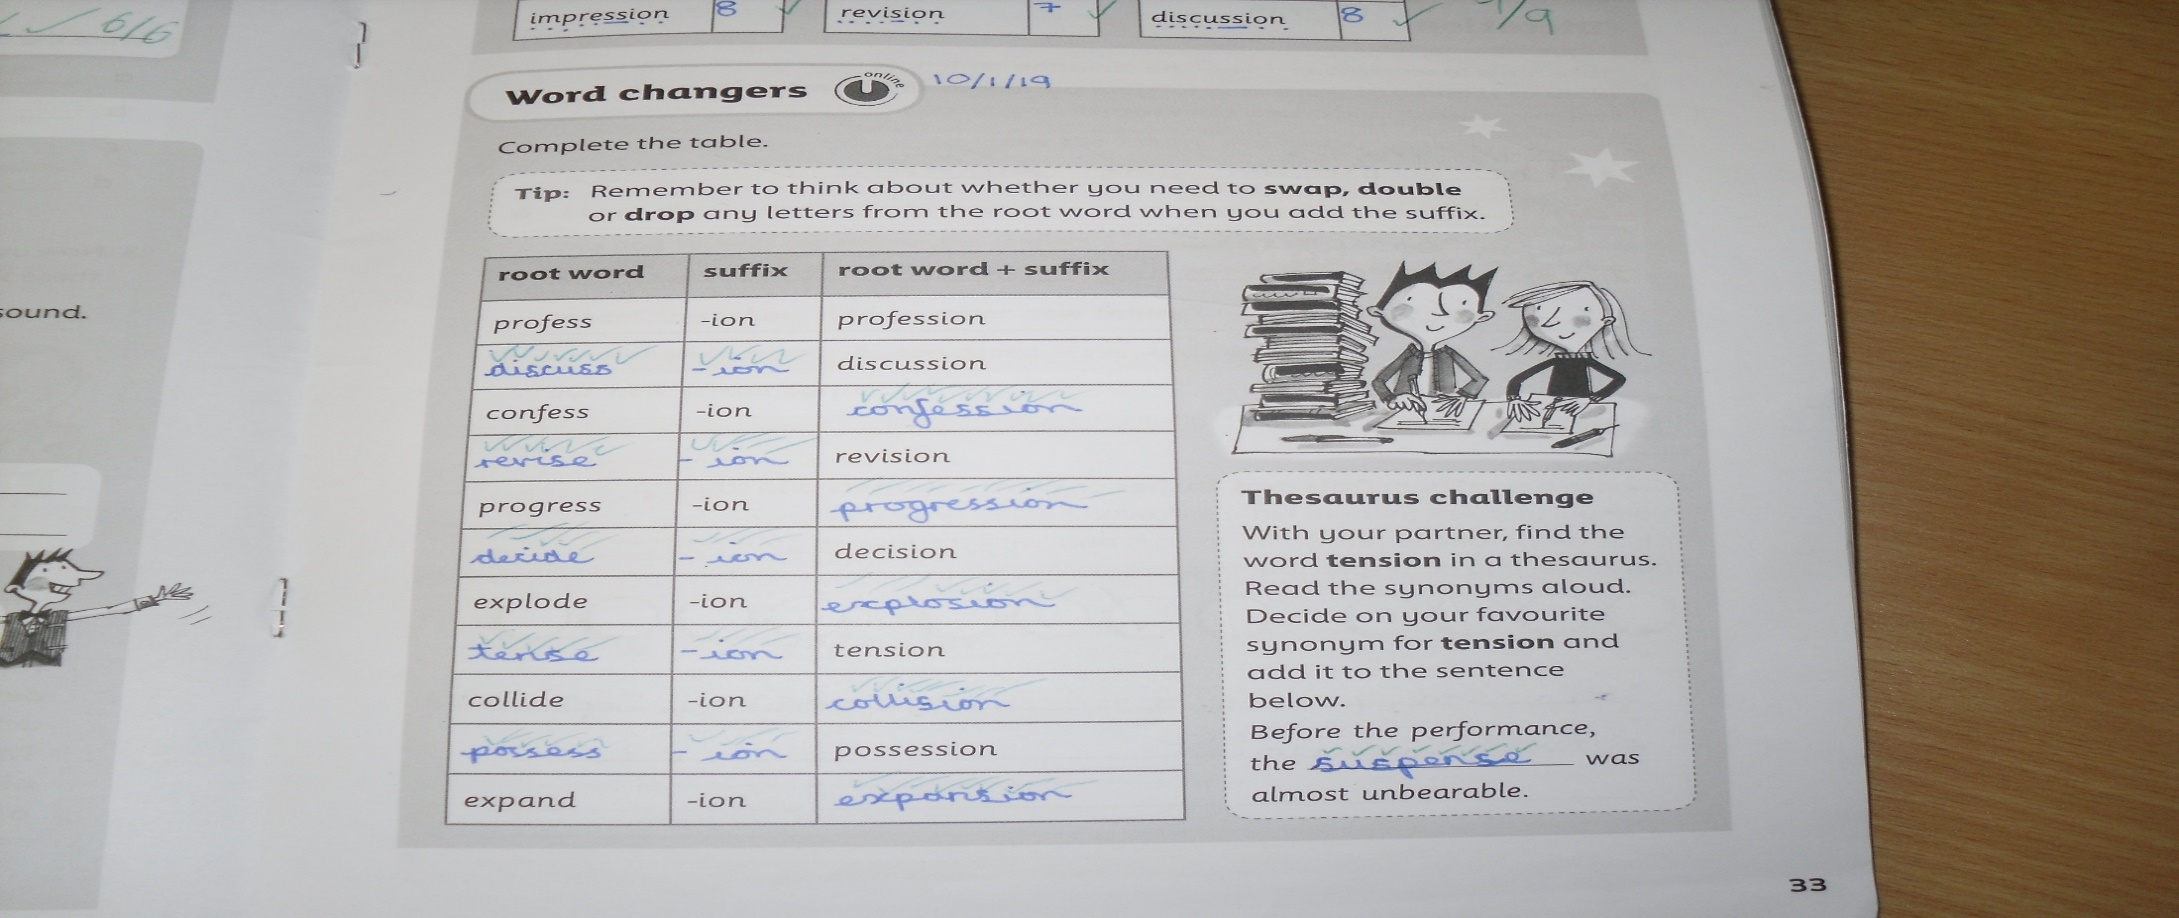 6/6
impression 8 revision 7 discussion 8 /9
Word changers online 10/1/19
Complete the table.
Tip: Remember to think about whether you need to swap, double
or drop any letters from the root word when you add the suffix.
root word suffix root word + suffix
profess -ion profession
discuss -ion discussion
confess -ion confession
revise -ion revision
progress -ion progression
decide -ion decision
explode -ion explosion
tense -ion tension
collide -ion collision
possess -ion possession
expand -ion expansion
Thesaurus challenge
With your partner, find the
word tension in a thesaurus.
Read the synonyms aloud.
Decide on your favourite
synonym for tension and
add it to the sentence
below.
Before the performance,
the suspense was
almost unbearable.
sound.
33